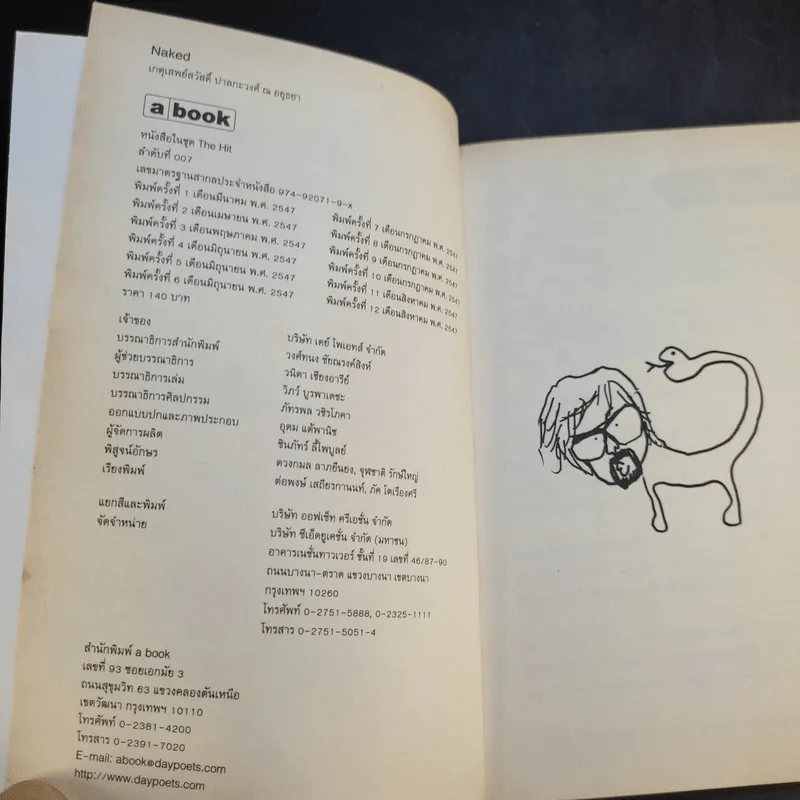 Naked
เกตุเสพย์สวัสดิ์ ปาลกะวงศ์ ณ อยุธยา
a book
หนังสือในชุด The Hit
ลำดับที่ 007
เลขมาตรฐานสากลประจำหนังสือ 974-92071-9-x
พิมพ์ครั้งที่ 1 เดือนมีนาคม พ.ศ. 2547
พิมพ์ครั้งที่ 2 เดือนเมษายน พ.ศ. 2547
พิมพ์ครั้งที่ 3 เดือนพฤษภาคม พ.ศ. 2547
พิมพ์ครั้งที่ 4 เดือนมิถุนายน พ.ศ. 2547
พิมพ์ครั้งที่ 5 เดือนมิถุนายน พ.ศ. 2547
พิมพ์ครั้งที่ 6 เดือนมิถุนายน พ.ศ. 2547
พิมพ์ครั้งที่ 7 เดือนกรกฎาคม พ.ศ. 2547
พิมพ์ครั้งที่ 8 เดือนกรกฎาคม พ.ศ. 2547
พิมพ์ครั้งที่ 9 เดือนกรกฎาคม พ.ศ. 2547
พิมพ์ครั้งที่ 10 เดือนกรกฎาคม พ.ศ. 2547
พิมพ์ครั้งที่ 11 เดือนสิงหาคม พ.ศ. 2547
พิมพ์ครั้งที่ 12 เดือนสิงหาคม พ.ศ. 2547
ราคา 140 บาท
เจ้าของ บริษัท เดย์ โพเอทส์ จำกัด
บรรณาธิการสำนักพิมพ์ วงศ์ทนง ชัยณรงค์สิงห์
ผู้ช่วยบรรณาธิการ วนิดา เชียงอารีย์
บรรณาธิการเล่ม วิภว์ บูรพาเดชะ
บรรณาธิการศิลปกรรม ภัทรพล วชิรโภคา
ออกแบบปกและภาพประกอบ อุดม แต้พานิช
ผู้จัดการผลิต ชินภัทร์ ลี้ไพบูลย์
พิสูจน์อักษร ดวงกมล ลาภยืนยง, จุฬชาติ รักษ์ใหญ่
เรียงพิมพ์ ต่อพงษ์ เสถียรกานนท์, ภัค โตเรืองศรี
แยกสีและพิมพ์ บริษัท ออฟเซ็ท ครีเอชั่น จำกัด
จัดจำหน่าย บริษัท ซีเอ็ดยูเคชั่น จำกัด (มหาชน)
อาคารเนชั่นทาวเวอร์ ชั้นที่ 19 เลขที่ 46/87-90
ถนนบางนา-ตราด แขวงบางนา เขตบางนา
กรุงเทพฯ 10260
โทรศัพท์ 0-2751-5888, 0-2325-1111
โทรสาร 0-2751-5051-4
สำนักพิมพ์ a book
เลขที่ 93 ซอยเอกมัย 3
ถนนสุขุมวิท 63 แขวงคลองตันเหนือ
เขตวัฒนา กรุงเทพฯ 10110
โทรศัพท์ 0-2381-4200
โทรสาร 0-2391-7020
E-mail: abook@daypoets.com
http://www.daypoets.com